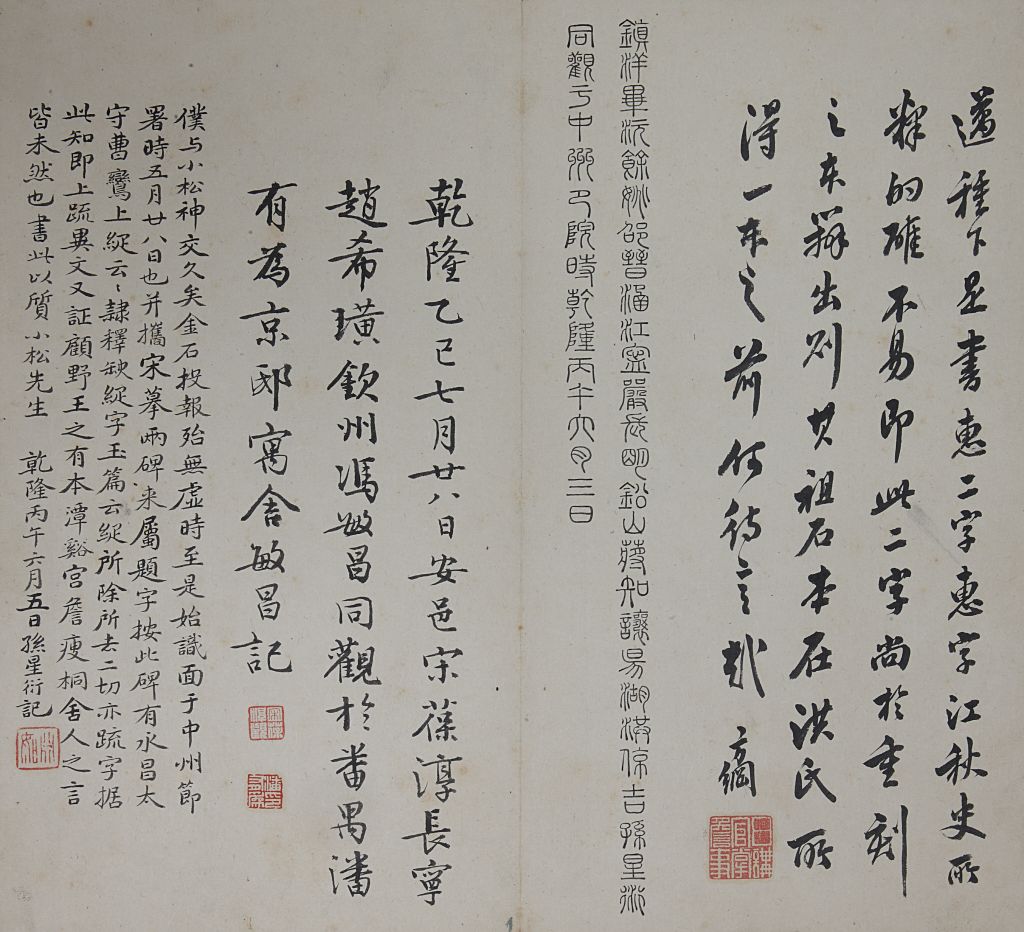 邁種下是書惠二字惠字江秋史所
釋的確不易即此二字尚於重刻
之本辨出則其祖石本在洪氏所
得一本之前何待言哉 方綱
鎮洋畢沅餘姚邵晉涵江寧嚴長明鉛山蔣知讓陽湖洪亮吉孫星衍
同觀于中州節院時乾隆丙午六月三日
乾隆乙巳七月廿八日安邑宋葆淳長寧
趙希璜欽州馮敏昌同觀於番禺潘
有為京邸寓舍敏昌記
僕与小松神交久矣金石投報殆無虛時至是始識面于中州節
署時五月廿八日也并攜宋摹兩碑来屬題字按此碑有永昌太
守曹鸞上綻云〻隷釋缺綻字玉篇云綻所除所去二切亦疏字据
此知即上疏異文又証顧野王之有本潭谿宮詹瘦桐舍人之言
皆未然也書此以質小松先生 乾隆丙午六月五日孫星衍記